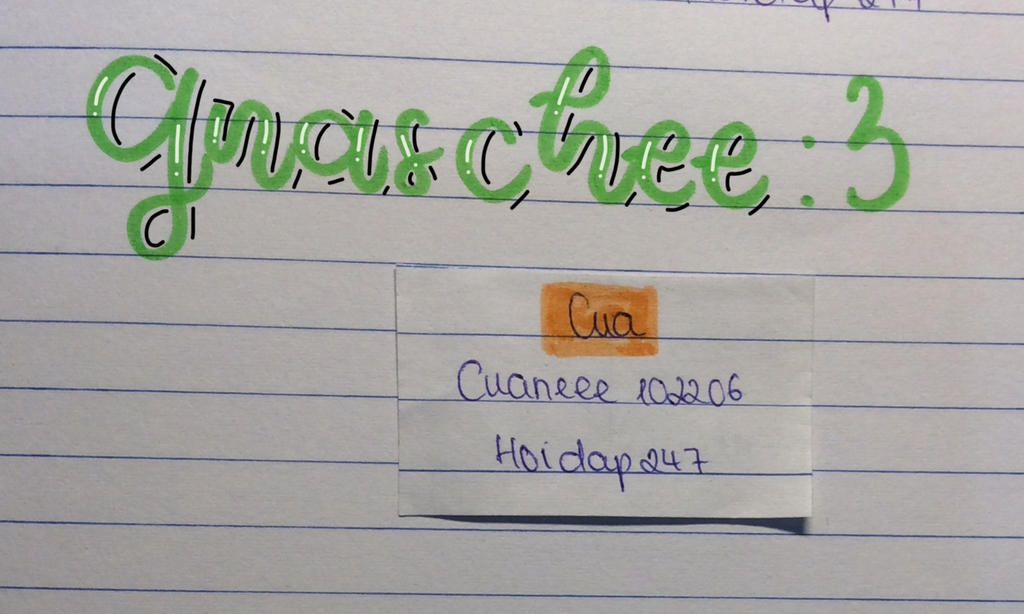 graschee :3
Cua
Cuaneee 102206
Hoidap247